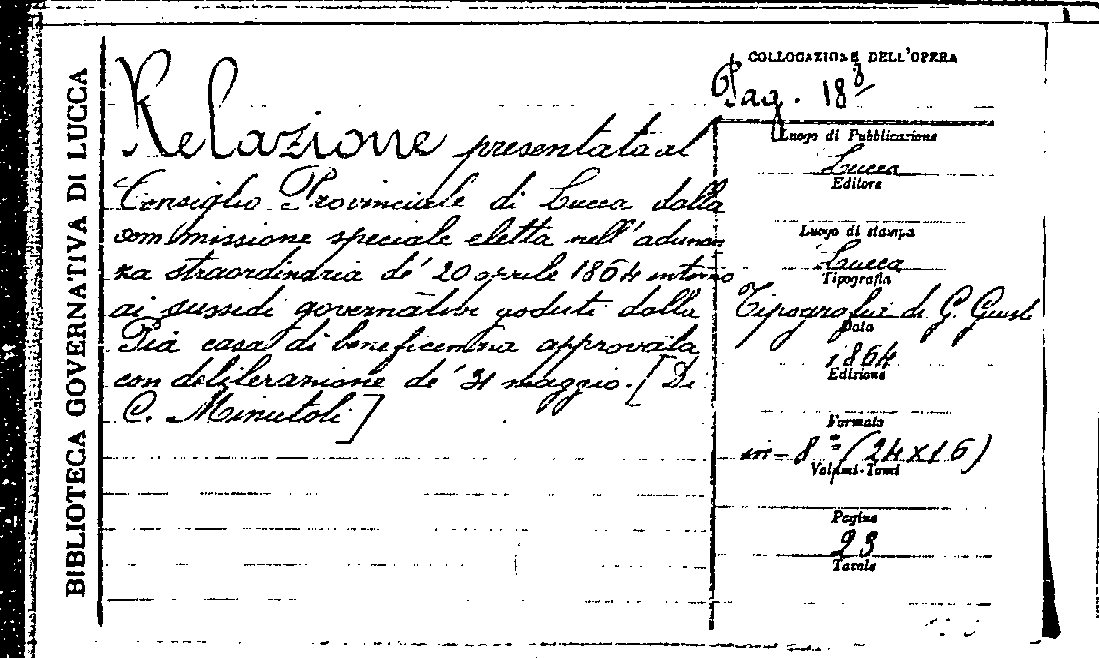 BIBLIOTECA GOVERNATIVA DI LUCCA
Relazione presentata al
Consiglio Provinciale di Lucca dalla
commissione speciale eletta nell'adunan
za straordinaria de' 20 aprile 1864 intorno
ai sussidi governativi goduti dalla
Pia casa di beneficenza approvata
con deliberazione de' 31 maggio. [Di
C. Minutoli]
COLLOCAZIONE DELL'OPERA
Pag. 18
Luogo di Pubblicazione
Lucca
Editore
Luogo di stampa
Lucca
Tipografia
Tipografia di G. Giusti
Data
1864
Edizione
Formato
in-8º (24x16)
Volumi-Tomi
Pagine
23
Tavole